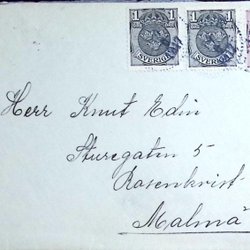 1 1 1 1
SVERIGE SVERIGE
Herr Knut Edin
Sturegaten 5
Rosenkvist
Malmö